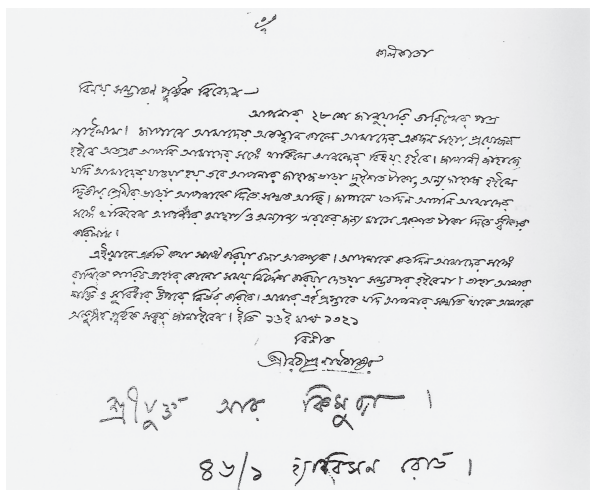 ওঁ
কলিকাতা
বিনয় সম্ভাষণ পূর্ব্বক নিবেদন—
আপনার ২৮শে জানুয়ারি তারিখের পত্র
পাইলাম। জাপানে আমাদের অবস্থান কালে আমাদের একজন সহায় প্রয়োজন
হইবে অতএব আপনি আমাদের সঙ্গে থাকিলে আনন্দের বিষয় হইবে। জাপানী জাহাজে
যদি আমাদের যাওয়া হয় তবে আপনার জাহাজ ভাড়া দুইশত টাকা, অন্য জাহাজ হইলে
দ্বিতীয় শ্রেণীর ভাড়া আপনাকে দিতে সম্মত আছি। জাপানে যতদিন আপনি আমাদের
সঙ্গে থাকিবেন আপনার আহার্য্য ও অন্যান্য খরচের জন্য মাসে একশত টাকা দিতে স্বীকার
করিলাম।
এইখানে একটি কথা স্পষ্ট করিয়া বলা আবশ্যক। আপনাকে কতদিন আমাদের সঙ্গে
রাখিতে পারিব তাহার কোনো সময় নির্দ্দেশ করিয়া দেওয়া সম্ভবপর হইবেনা। তাহা আমার
শক্তি ও সুবিধার উপরে নির্ভর করিবে। আমার এই প্রস্তাবে যদি আপনার সম্মতি থাকে আমাকে
অনুগ্রহ পূর্ব্বক সত্বর জানাইবেন। ইতি ১৬ই মাঘ ১৩২১
বিনীত
শ্রীরবীন্দ্রনাথ ঠাকুর
শ্রীযুক্ত আর কিমুরা।
৪৬/১ হ্যারিসন রোড।